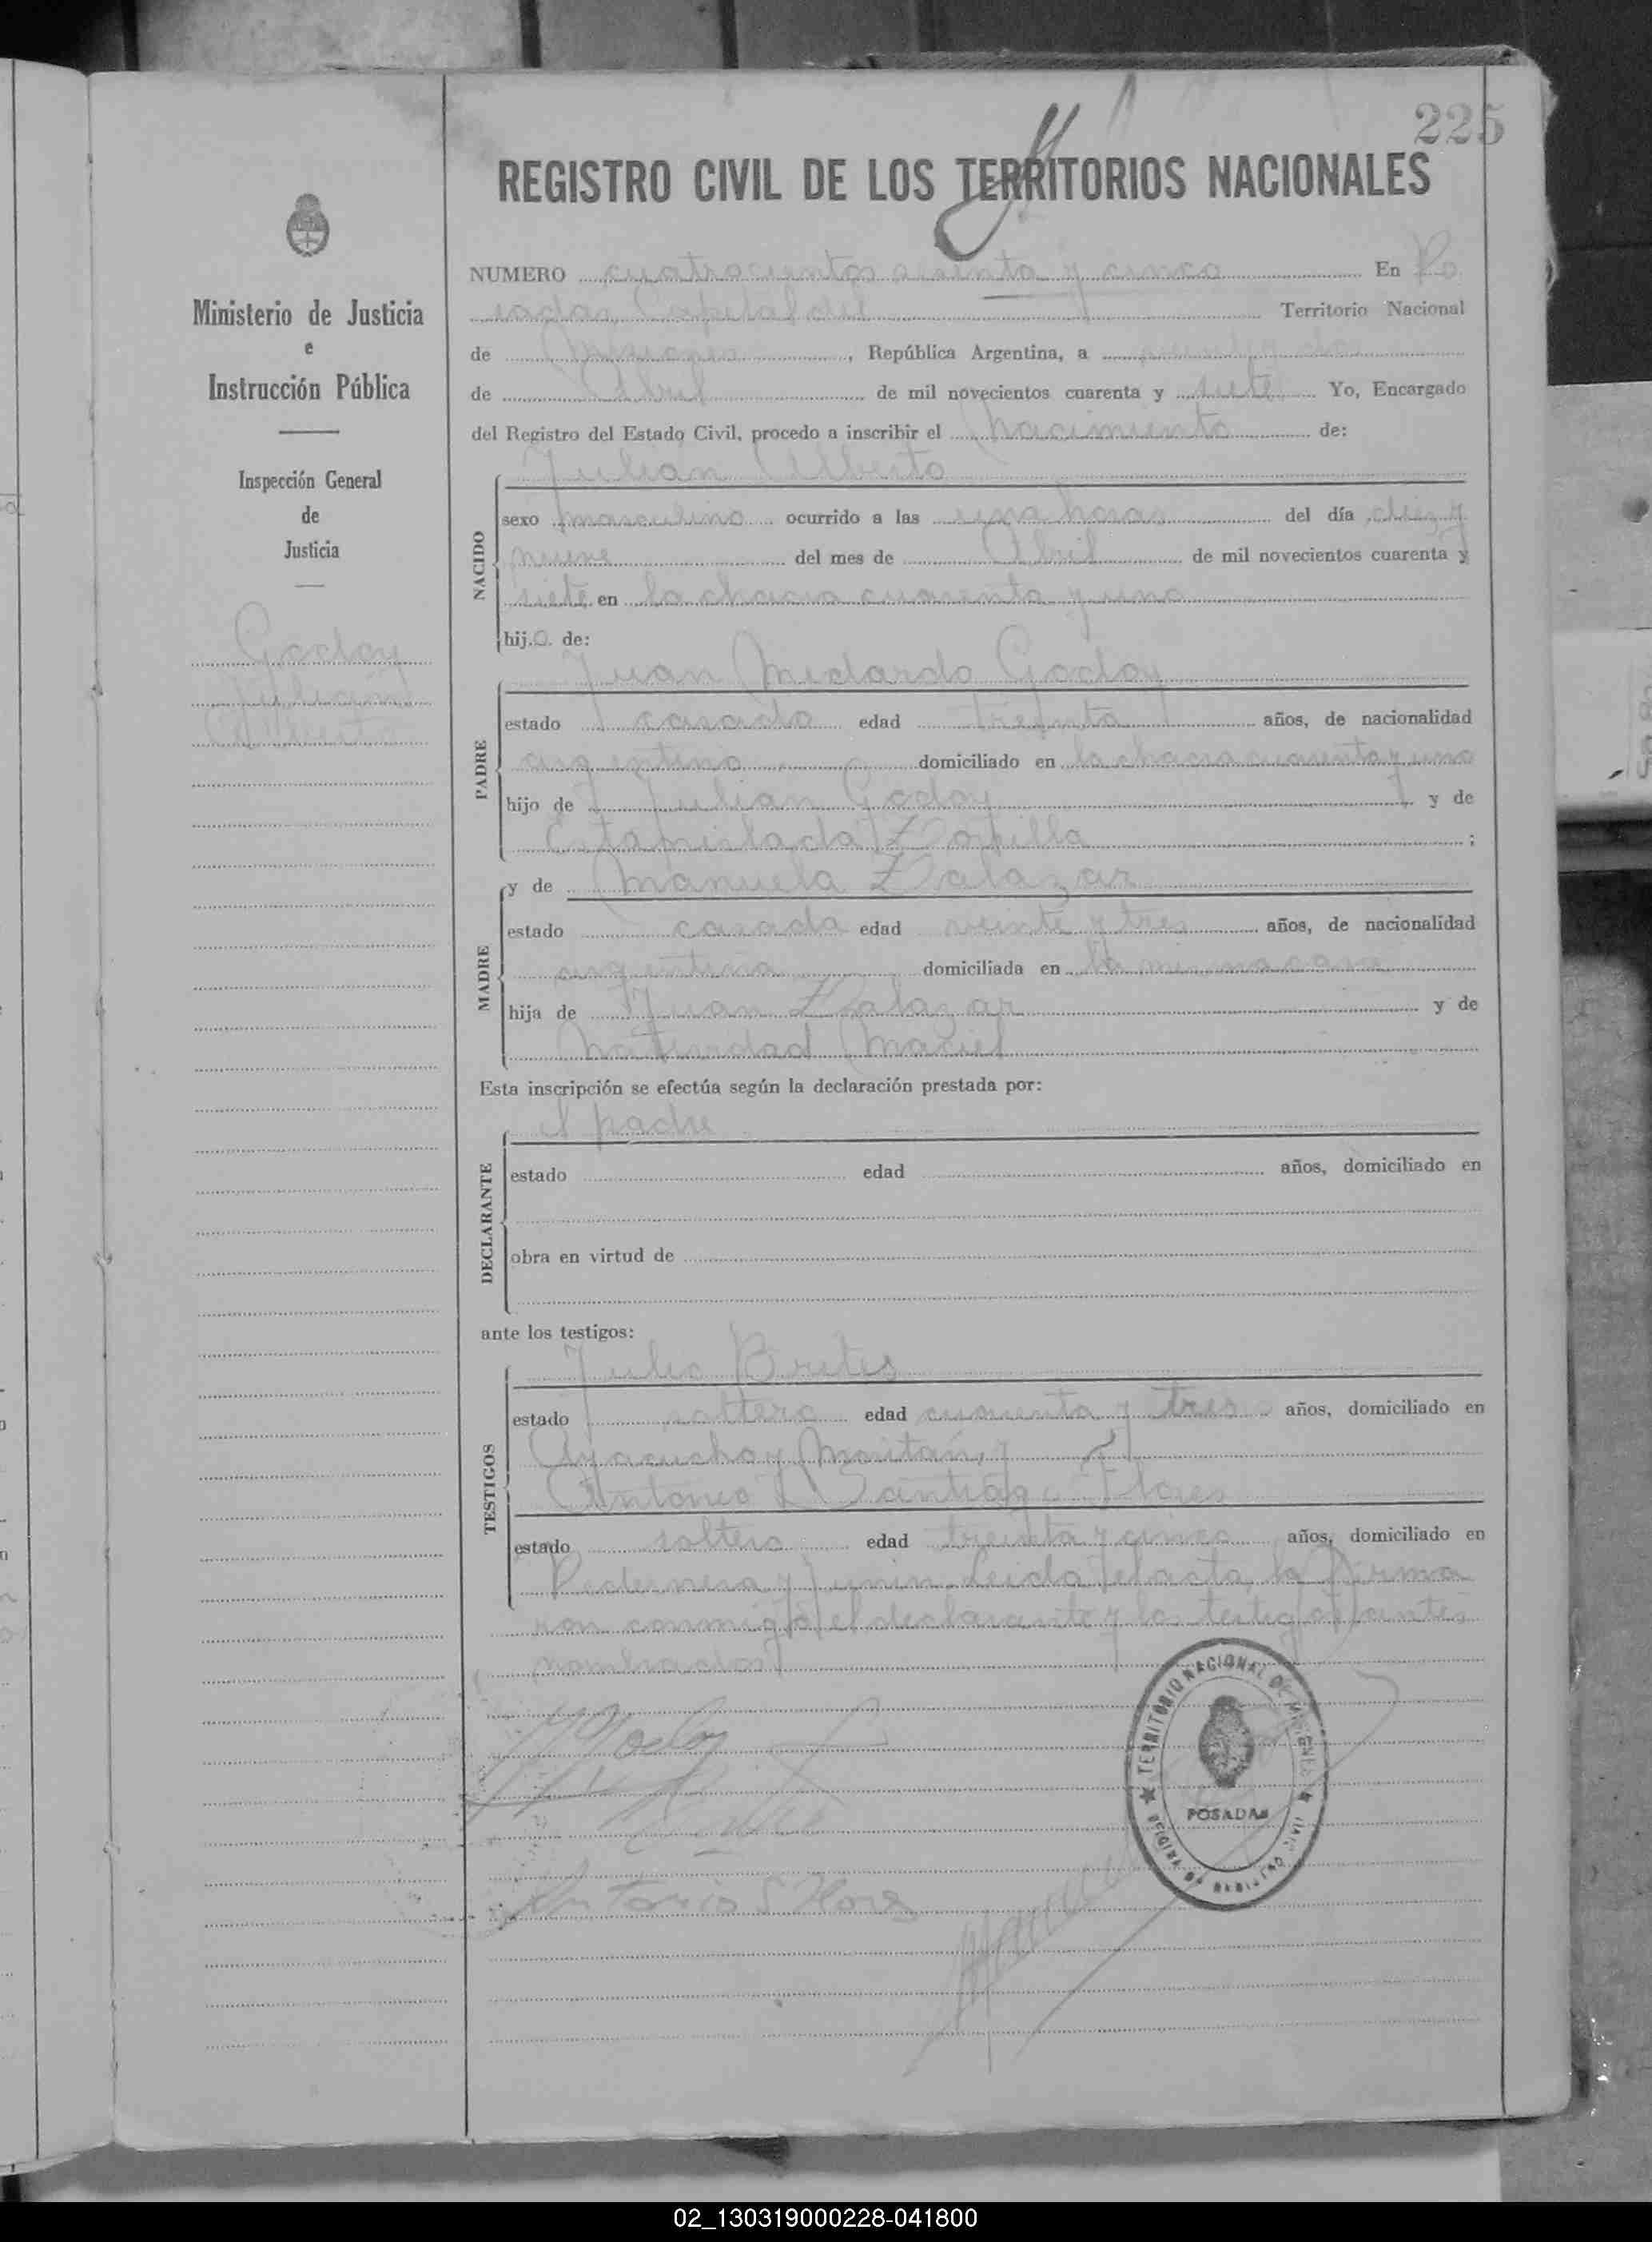 225
REGISTRO CIVIL DE LOS TERRITORIOS NACIONALES
Ministerio de Justicia
e
Instrucción Pública
Inspección General
de
Justicia
Godoy
Julián
Alberto
NUMERO cuatrocientos sesenta y cinco En Po
sadas, Capital del Territorio Nacional
de Misiones, República Argentina, a veinte dos
de Abril de mil novecientos cuarenta y siete Yo, Encargado
del Registro del Estado Civil, procedo a inscribir el nacimiento de:
Julián Alberto
NACIDO
sexo masculino ocurrido a las una horas del día diez y
nueve del mes de Abril de mil novecientos cuarenta y
siete en la chacra cuarenta y uno
hij.o. de:
Juan Medardo Godoy
PADRE
estado casado edad treinta años, de nacionalidad
argentino domiciliado en la chacra cuarenta y uno
hijo de Julián Godoy y de
Zorrilla ;
y de Manuela Zalazar
MADRE
estado casada edad veinte y tres años, de nacionalidad
argentina domiciliada en la misma casa
hija de Juan Zalazar y de
Natividad Maciel
Esta inscripción se efectúa según la declaración prestada por:
el padre
DECLARANTE
estado edad años, domiciliado en
obra en virtud de
ante los testigos:
Julio Brites
TESTIGOS
estado soltero edad cuarenta y tres años, domiciliado en
Ayacucho y
Antonio Santiago Flores
estado soltero edad treinta y cinco años, domiciliado en
Pedernera y Junin. Leida el acta, la firma
ron conmigo el declarante y los testigos antes
nombrados
Godoy
Antonio S Flores
TERRITORIO NACIONAL DE MISIONES
POSADAS
OFICINA DE REGISTRO CIVIL
02_130319000228-041800